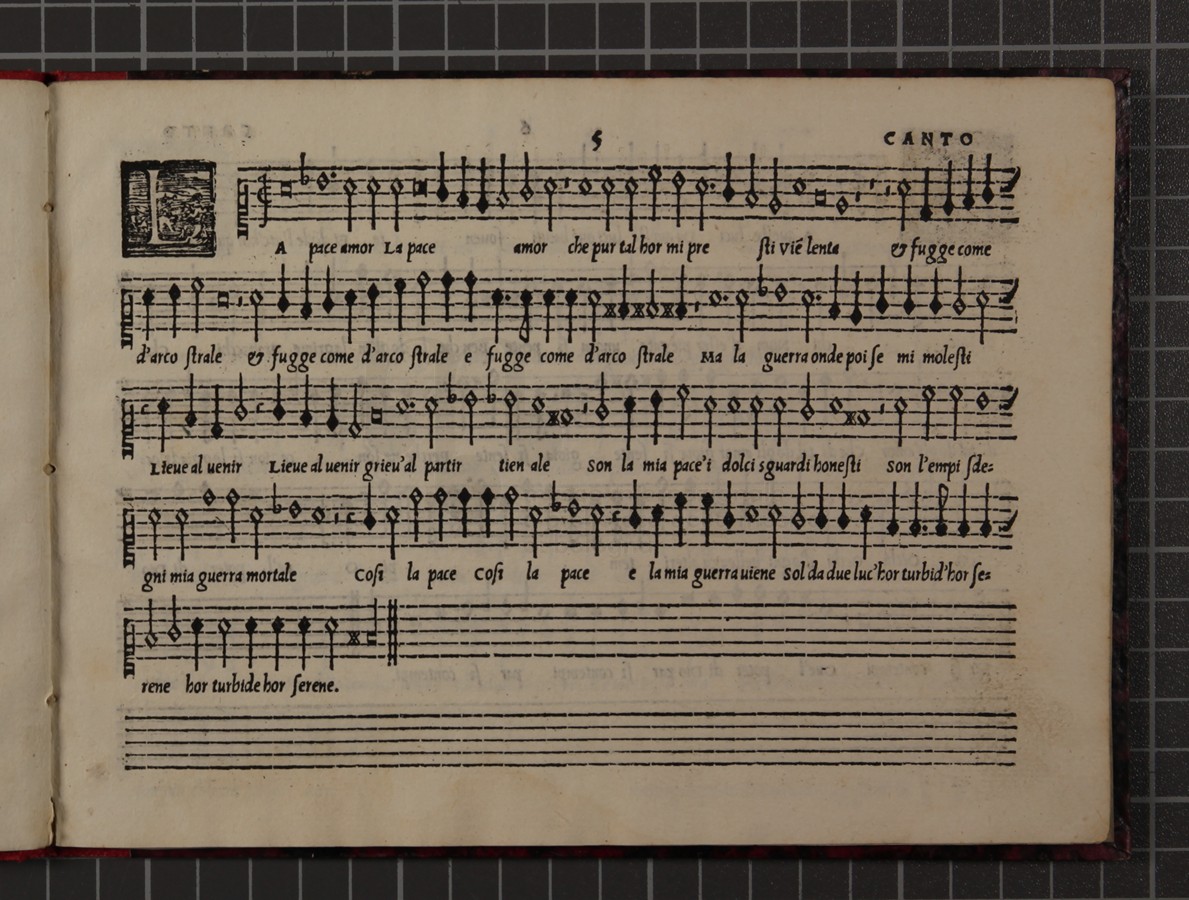 5 CANTO
LA pace amor La pace amor che pur tal hor mi pre sti viē lenta & fugge come
d'arco strale & fugge come d'arco strale e fugge come d'arco strale Ma la guerra onde poi se mi molesti
Lieue al uenir Lieue al uenir grieu'al partir tien ale Son la mia pace'i dolci sguardi honesti Son l'empi sde=
gni mia guerra mortale Cosi la pace Cosi la pace e la mia guerra uiene Sol da due luc'hor turbid'hor se=
rene hor turbide hor serene.